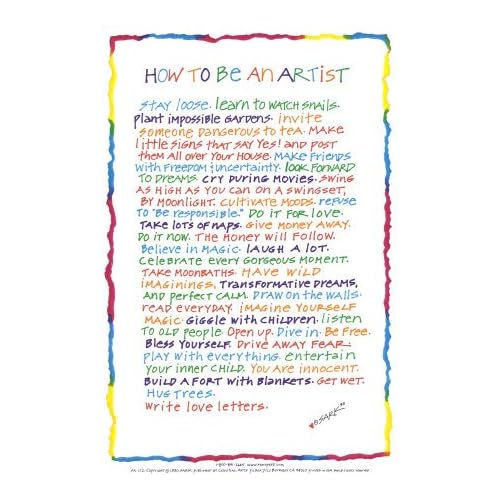 HOW TO BE AN ARTIST
STAY LOOSE. learn to WATCH SNAILS.
plant IMPOSSIBLE GARDENS. invite
someone DANGEROUS TO TEA. MAKE
little SIGNS THAT SAY YES! AND post
THEM All OVER YOUR HOUSE. MAKE FRIENDS
WITH FREEDOM & UNCERTAINTY. lOOK FORWARD
TO DREAMS. CRY DURING MOVIES. SWING
AS HIGH AS YOU CAN ON A SWINGSET,
BY MOONlIGHT. CUlTIVATE MOODS. REFUSE
TO "BE RESPONSIBLE." DO IT FOR LOVE.
TAKE LOTS OF NAPS. GIVE MONEY AWAY.
DO IT NOW. THE MONEY WILL FOLLOW.
Believe in MAGIC. lAUGH A LOT.
CELEBRATE EVERY GORGEOUS MOMENT.
TAKE MOONBATHS. HAVE WILD
IMAGININGS, TRANSFORMATIVE DREAMS,
AND perfect CALM. DRAW ON THE WALLS.
READ EVERYDAY. IMAGINE YOURSELF
MAGIC. GIGGLE WITH CHILDREN. listen
TO OLD PEOPLE. OPEN UP. DIVE IN. BE FREE.
Bless YOURSELF. DRIVE AWAY FEAR.
PLAY WITH EVERYTHING. ENTERTAIN
YOUR INNER CHILD. YOU ARE INNOCENT.
BUILD A FORT WITH BLANKETS. GET WET.
HUG TREES.
WRITE LOVE LETTERS.
SARK